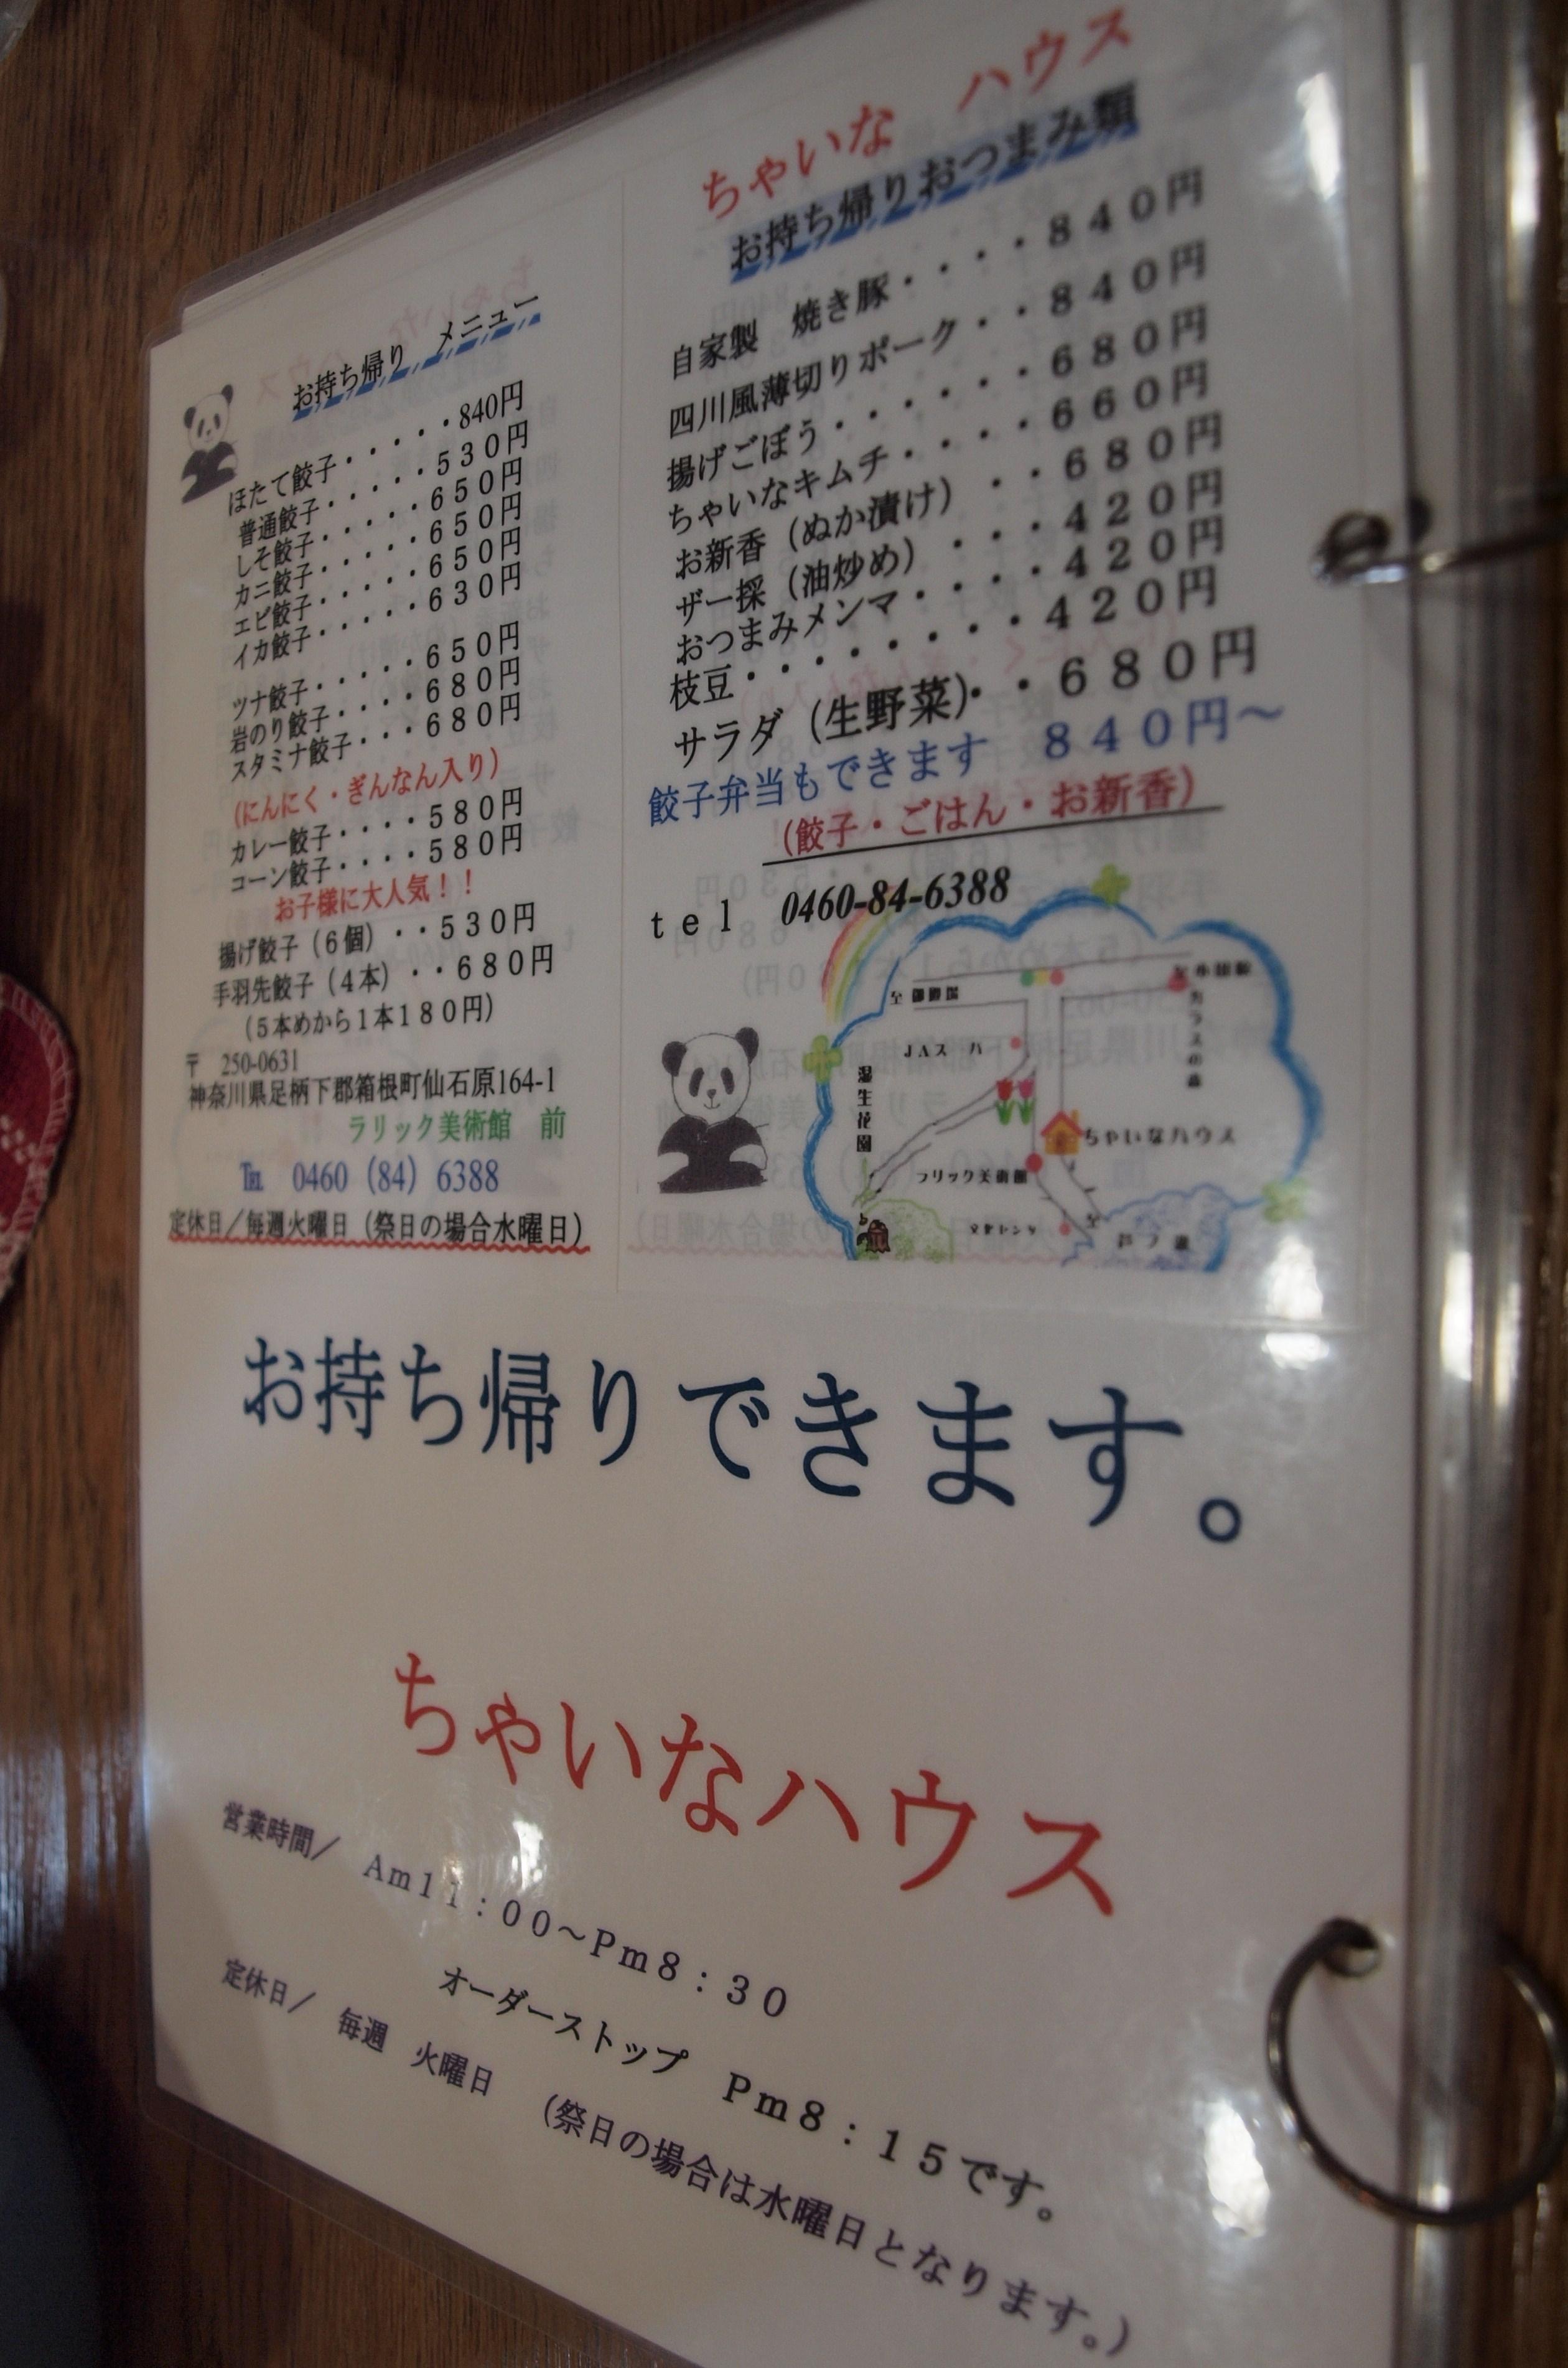 お持ち帰り　メニュー
ほたて餃子・・・・・840円
普通餃子・・・・・５３０円
しそ餃子・・・・・６５０円
カニ餃子・・・・・６５０円
エビ餃子・・・・・６５０円
イカ餃子・・・・・６３０円
ツナ餃子・・・・・６５０円
岩のり餃子・・・・６８０円
スタミナ餃子・・・６８０円
（にんにく・ぎんなん入り）
カレー餃子・・・・５８０円
コーン餃子・・・・５８０円
お子様に大人気！！
揚げ餃子（６個）・・５３０円
手羽先餃子（４本）・・６８０円
（５本めから１本１８０円）
〒　250-0631
神奈川県足柄下郡箱根町仙石原164-1
ラリック美術館　前
℡　0460（84）6388
定休日／毎週火曜日（祭日の場合水曜日）
ちゃいな　ハウス
お持ち帰りおつまみ類
自家製　焼き豚・・・・８４０円
四川風薄切りポーク・・８４０円
揚げごぼう・・・・・・６８０円
ちゃいなキムチ・・・・６６０円
お新香（ぬか漬け）・・６８０円
ザー採（油炒め）・・・４２０円
おつまみメンマ・・・・４２０円
枝豆・・・・・・・・４２０円
サラダ（生野菜）・・６８０円
餃子弁当もできます　８４０円～
（餃子・ごはん・お新香）
ｔｅｌ　0460-84-6388
至 御殿場
至 小田原
ガラスの森
JAスーパー
湿生花園
ちゃいなハウス
ラリック美術館
至
芦ノ湖
お持ち帰りできます。
ちゃいなハウス
営業時間／　Ａｍ１１：００～Ｐｍ８：３０
オーダーストップ　Ｐｍ８：１５です。
定休日／　毎週　火曜日　（祭日の場合は水曜日となります。）